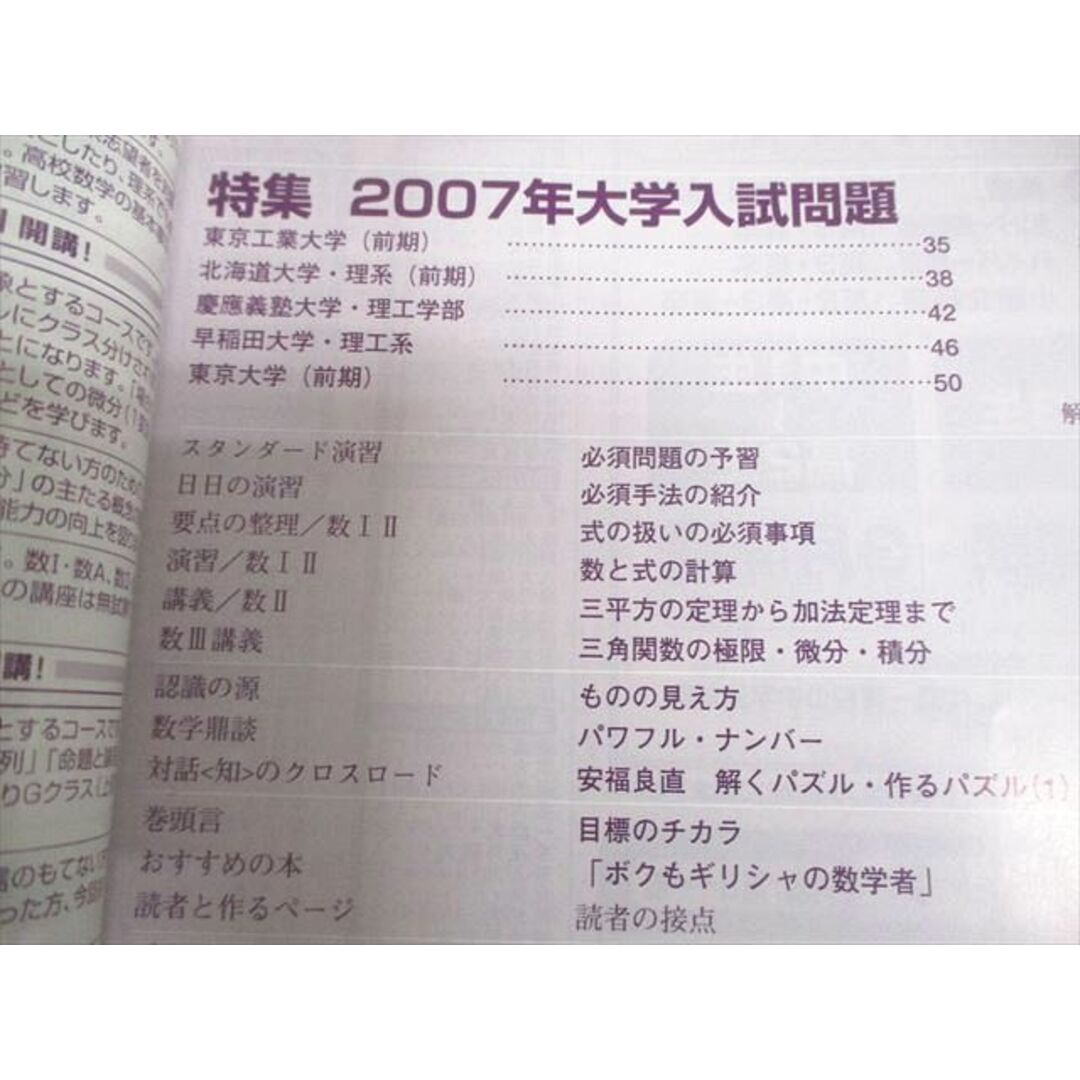 志望者を
にしたり、理系で
。高校数学の基本
習します。
開講!
象とするコースです
レにクラス分けされ
とになります。
としての微分(
どを学びます。
待てない方のため
分」の主たる概念
能力の向上を
。数Ⅰ・数A、数
の講座は無試
講!
とするコースで
列」「命題と
りGクラス
のもてない
った方、今回
特集 2007年大学入試問題
東京工業大学(前期) ……35
北海道大学・理系(前期) ……38
慶應義塾大学・理工学部 ……42
早稲田大学・理工系 ……46
東京大学(前期) ……50
解
スタンダード演習 必須問題の予習
日日の演習 必須手法の紹介
要点の整理/数ⅠⅡ 式の扱いの必須事項
演習/数ⅠⅡ 数と式の計算
講義/数Ⅱ 三平方の定理から加法定理まで
数Ⅲ講義 三角関数の極限・微分・積分
認識の源 ものの見え方
数学鼎談 パワフル・ナンバー
対話<知>のクロスロード 安福良直 解くパズル・作るパズル(1)
巻頭言 目標のチカラ
おすすめの本 「ボクもギリシャの数学者」
読者と作るページ 読者の接点